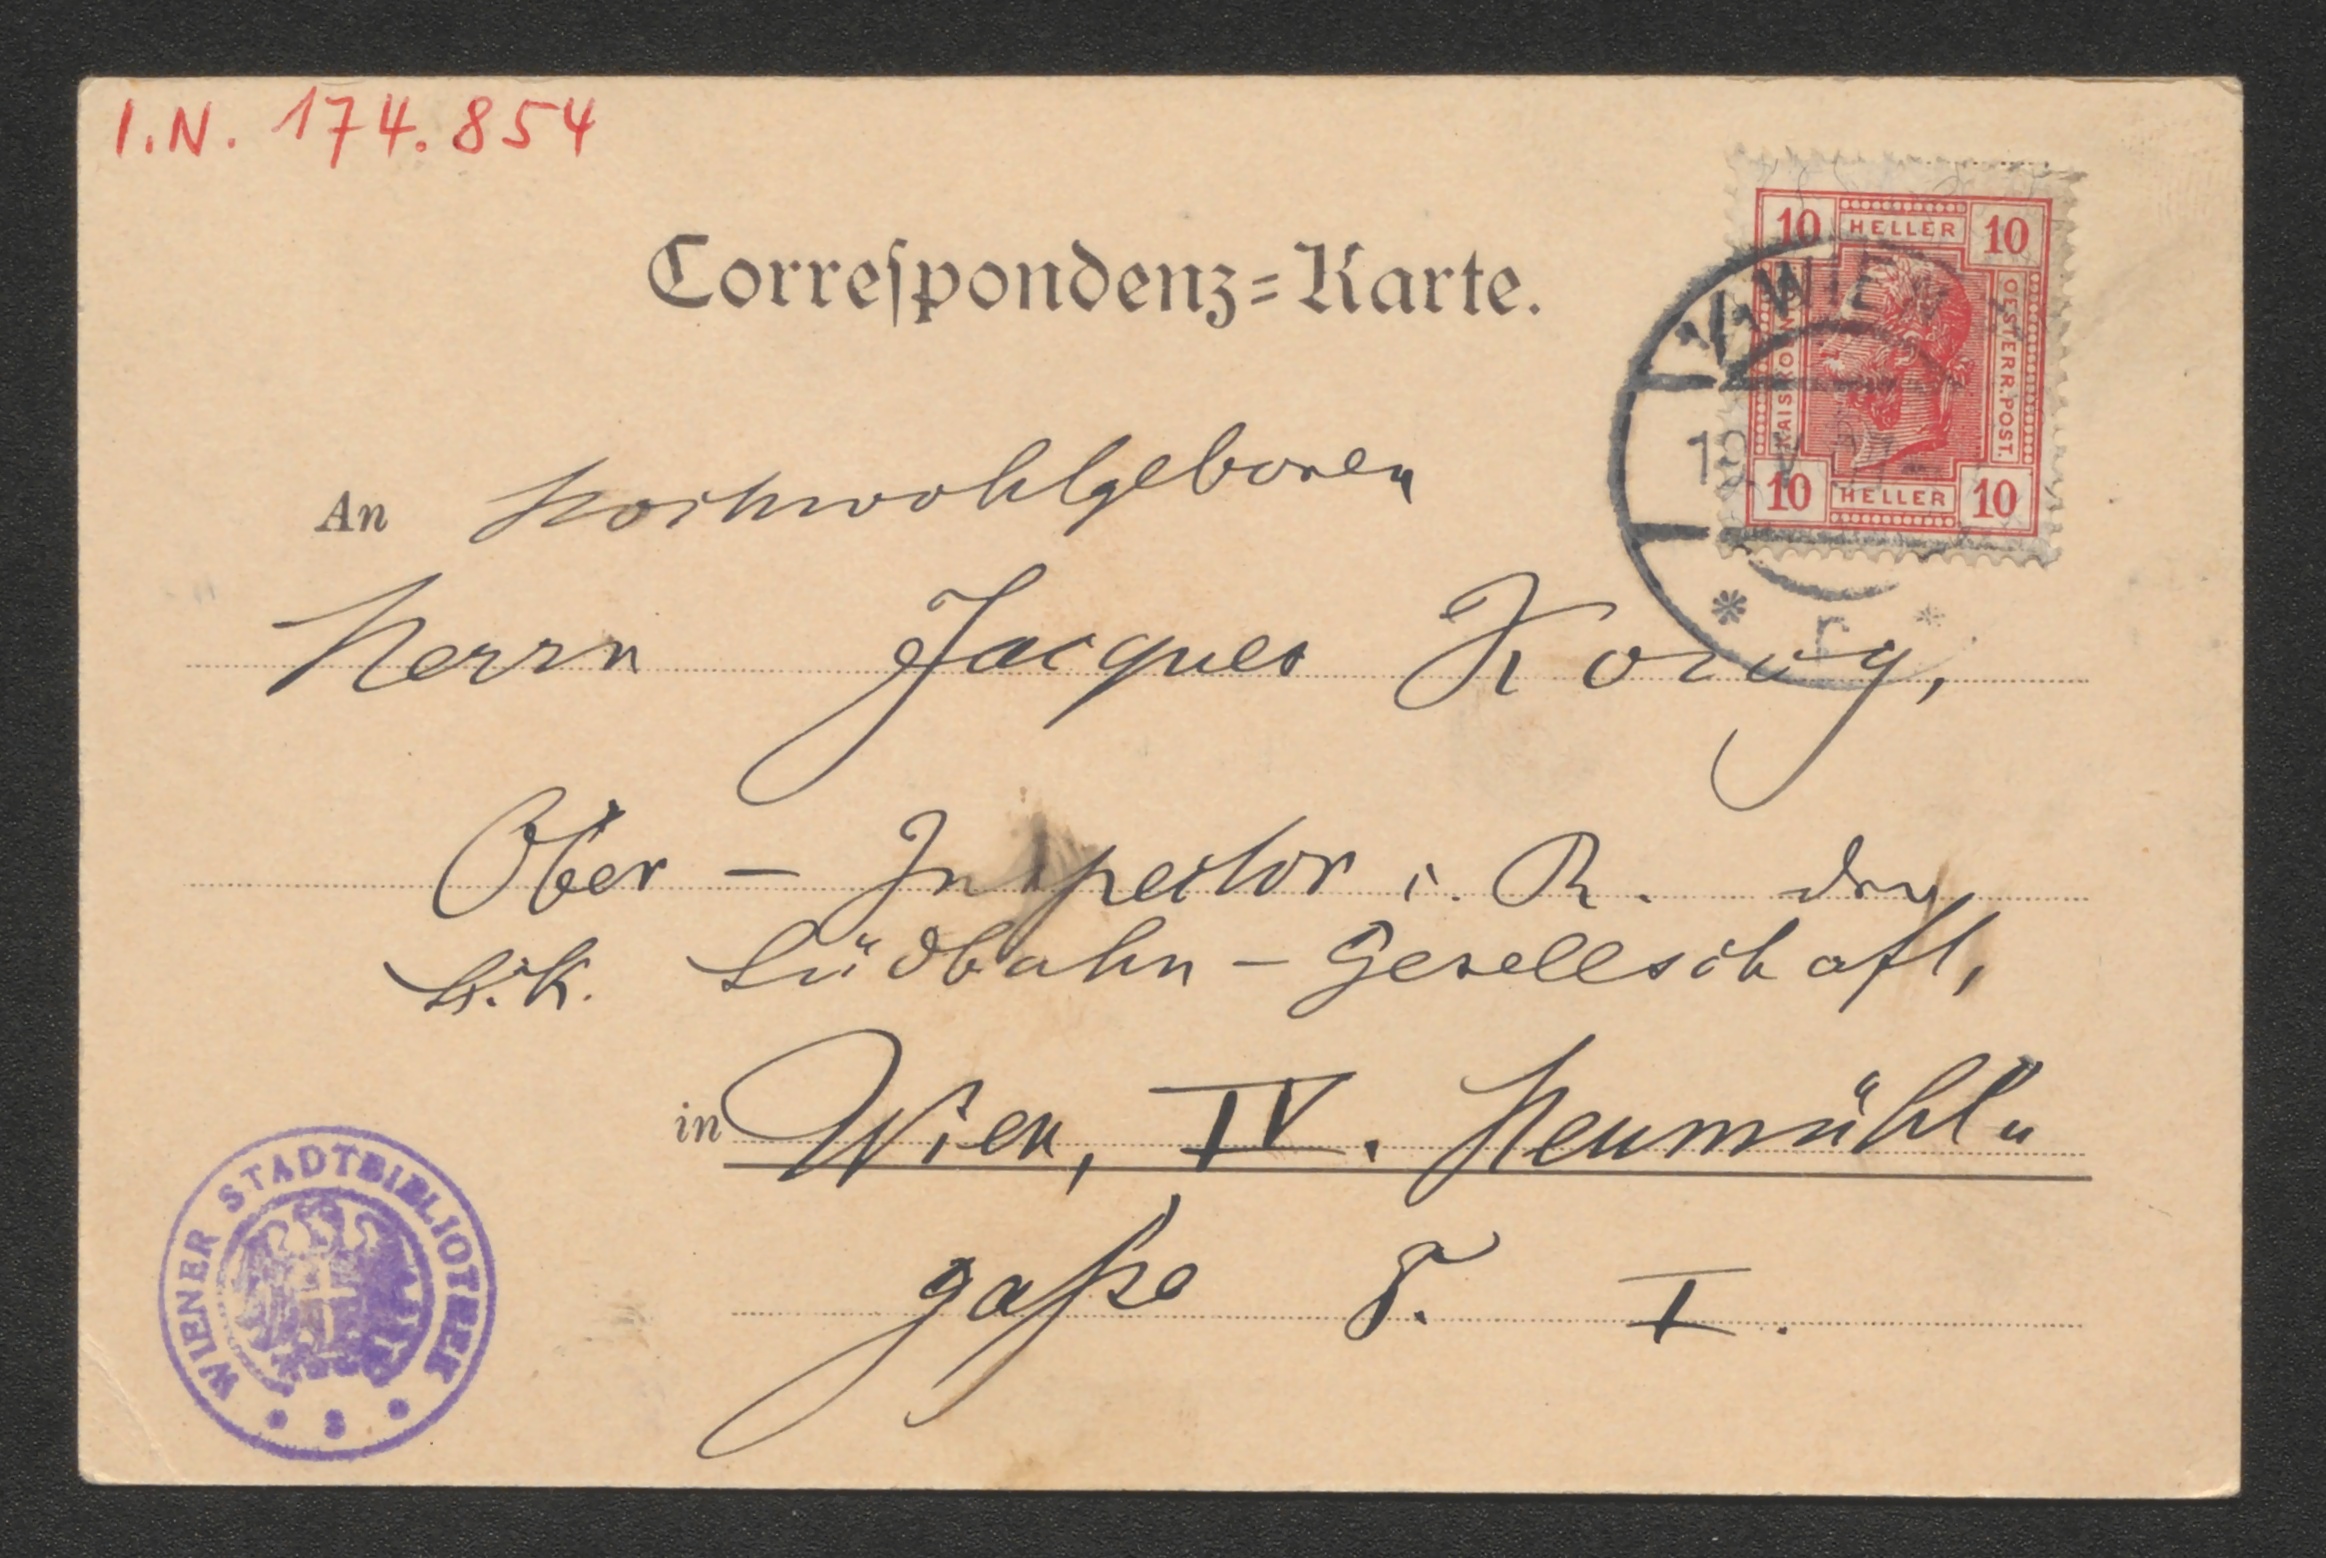 I.N. 174.854
Correspondenz=Karte.
10 HELLER 10
OESTERR. POST.
10 HELLER 10
WIEN
r
An Hochwohlgeboren
Herrn Jacques
Ober - Inspector i. R. der
k. k. Südbahn - Gesellschaft,
in Wien, IV. Neumühl"
gaße I.
WIENER STADTBIBLIOTHEK